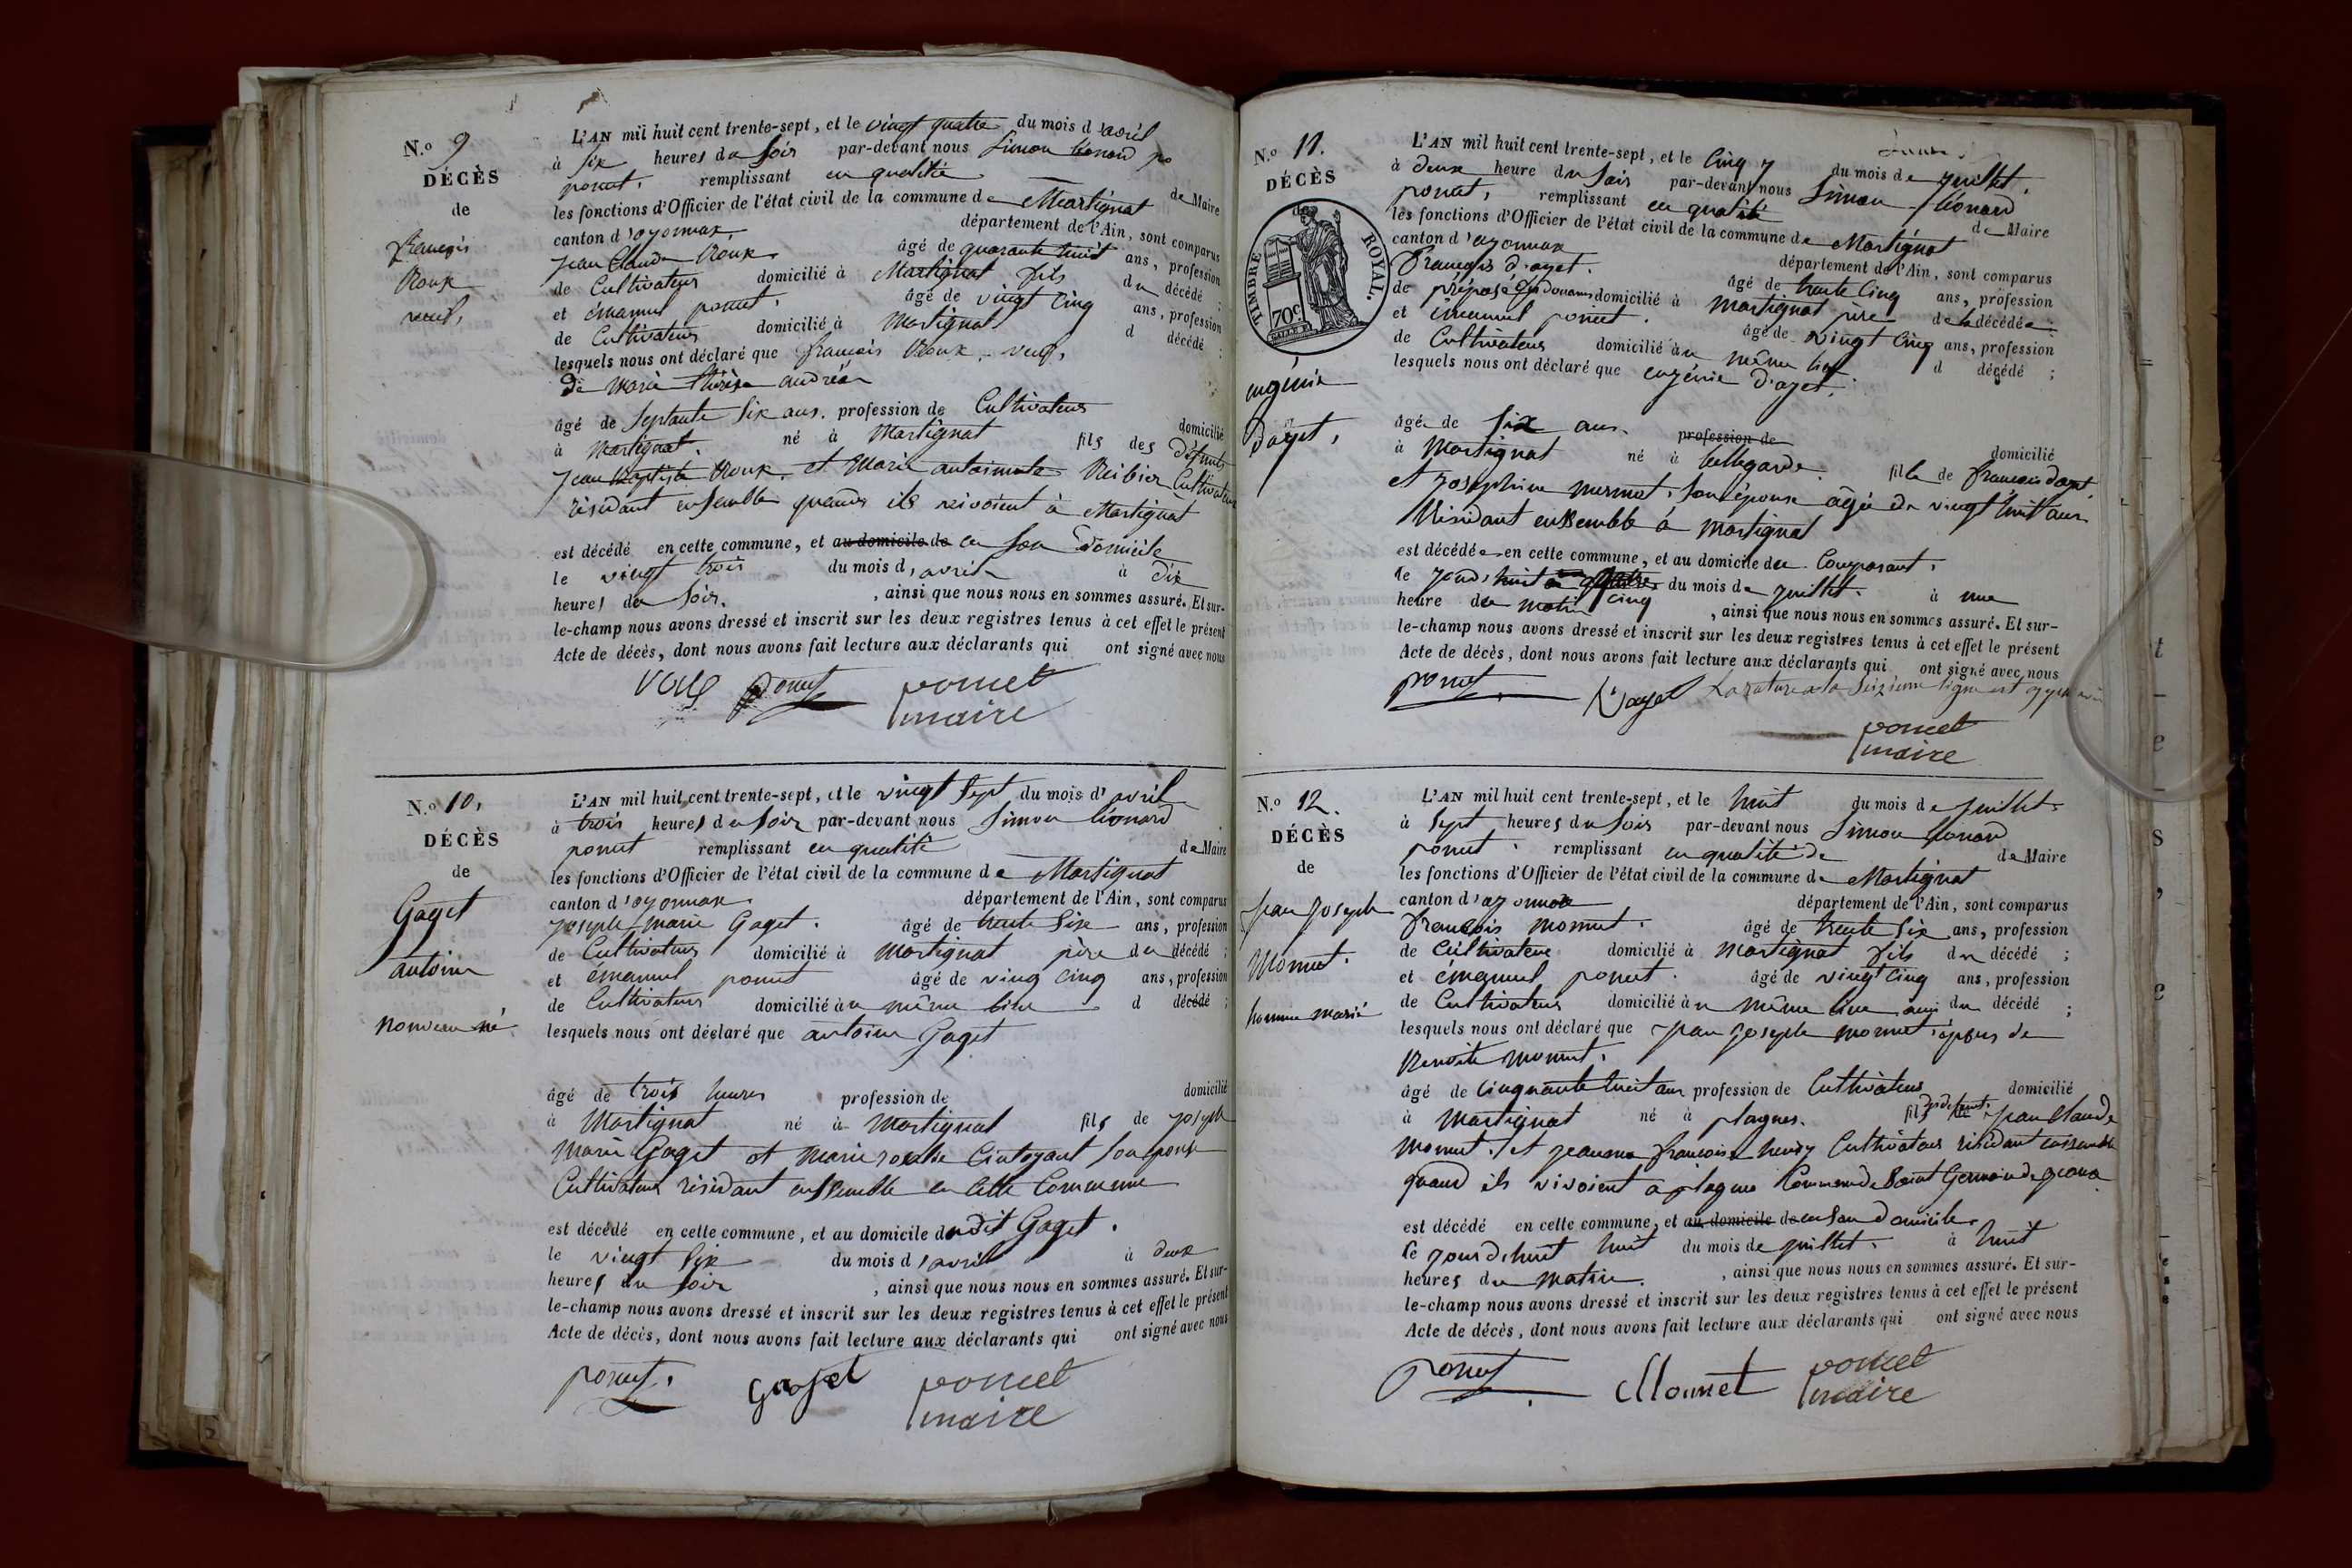 N.º 9
DÉCÈS
de
françois
Roux
veuf,
L'AN mil huit cent trente-sept, et le vingt quatre du mois d'avril
à six heures du soir par-devant nous Simon Léonard po
ponnet. remplissant en qualité de Maire
les fonctions d'Officier de l'état civil de la commune de Martignat
canton d'oyonnax département de l'Ain, sont comparus
jean Claude Roux. âgé de quarante huit ans, profession
de Cultivateur domicilié à Martignat fils du décédé ;
et émanuel ponnet. âgé de vingt cinq ans, profession
de Cultivateur domicilié à Martignat d décédé ;
lesquels nous ont déclaré que françois Roux, veuf,
de Marie thérèse andréa
âgé de Septante Six ans. profession de Cultivateur domicilié
à Martignat. né à Martignat fils des défunts
jean Baptiste Roux et Marie antoinete Reibier Cultivateur
résidant ensemble quand ils vivoient à Martignat
est décédé en cette commune, et au domicile de en son Domicile
le vingt trois du mois d'avril à dix
heures du soir. , ainsi que nous nous en sommes assuré. Et sur-
le-champ nous avons dressé et inscrit sur les deux registres tenus à cet effet le présent
Acte de décès, dont nous avons fait lecture aux déclarants qui ont signé avec nous
ponnet poncet
maire
N.º 10,
DÉCÈS
de
Gaget
antoine
nouveau né
L'AN mil huit cent trente-sept, et le vingt Sept du mois d'avril
à trois heures du Soir par-devant nous Simon Léonard
ponnet remplissant en qualité de Maire
les fonctions d'Officier de l'état civil de la commune de Martignat
canton d'oyonnax. département de l'Ain, sont comparus
joseph marie Gaget. âgé de trente Six ans, profession
de Cultivateur domicilié à Martignat père du décédé ;
et émanuel ponnet âgé de ving cinq ans, profession
de Cultivateur domicilié à u même lieu d décédé ;
lesquels nous ont déclaré que antoine Gaget
âgé de trois heures profession de domicilié
à Martignat né à Martignat fils de joseph
Marie Gaget et Marie rosalie Son épouse
Cultivateur résidant ensemble en cette Commune
est décédé en cette commune, et au domicile dudit Gaget.
le vingt Six du mois d'avril à deux
heures du soir , ainsi que nous nous en sommes assuré. Et sur-
le-champ nous avons dressé et inscrit sur les deux registres tenus à cet effet le présent
Acte de décès, dont nous avons fait lecture aux déclarants qui ont signé avec nous
ponnet. gaget poncet
maire
N.º 11.
DÉCÈS
de
TIMBRE ROYAL.
70c
eugénie
Dayet,
L'AN mil huit cent trente-sept, et le Cinq du mois de juillet.
à deux heure du Soir par-devant nous Simon Léonard
ponnet, remplissant en qualité de Maire
les fonctions d'Officier de l'état civil de la commune de Martignat
canton d'oyonnax département de l'Ain, sont comparus
françois d'ayet. âgé de trente Cinq ans, profession
de préposé des douanes domicilié à Martignat père de la décédée ;
et émanuel ponnet. âgé de vingt Cinq ans, profession
de Cultivateur domicilié à u même lieu. d décédé ;
lesquels nous ont déclaré que eugénie d'ayet.
âgé de Six ans. profession de domicilié
à Martignat né à bellegarde. fille de françois dayet
et joséphine mermet, Son épouse agée de vingt huit ans
Résidant ensemble à Martignat
est décédée en cette commune, et au domicile du Composant.
le cinq du mois de juillet. à une
heure du matin , ainsi que nous nous en sommes assuré. Et sur-
le-champ nous avons dressé et inscrit sur les deux registres tenus à cet effet le présent
Acte de décès, dont nous avons fait lecture aux déclarants qui ont signé avec nous
ponnet Dayet La rature a la Seizieme ligne est
poncet
maire
N.º 12.
DÉCÈS
de
jean joseph
Monnet.
homme marié
L'AN mil huit cent trente-sept, et le huit du mois de juillet
à Sept heures du Soir par-devant nous Simon Léonard
ponnet. remplissant en qualité de de Maire
les fonctions d'Officier de l'état civil de la commune de Martignat
canton d'oyonnax département de l'Ain, sont comparus
françois monnet. âgé de trente Six ans, profession
de Cultivateur domicilié à Martignat fils du décédé ;
et émanuel ponnet. âgé de vingt cinq ans, profession
de Cultivateur domicilié à u même lieu ami du décédé ;
lesquels nous ont déclaré que jean joseph monnet époux de
Benoite monnet.
âgé de Cinquante huit ans profession de Cultivateur domicilié
à Martignat né à plagnes. fils des défunt jean Claude
Monnet. et jeanne françoise Cultivateur résidant ensemble
quand ils vivoient a plagnes Commune de Saint Germain de joux
est décédé en cette commune, et au domicile de en son domicile.
le jourdhuit huit du mois de juillet. à huit
heures du matin. , ainsi que nous nous en sommes assuré. Et sur-
le-champ nous avons dressé et inscrit sur les deux registres tenus à cet effet le présent
Acte de décès, dont nous avons fait lecture aux déclarants qui ont signé avec nous
ponnet Monnet poncet
maire